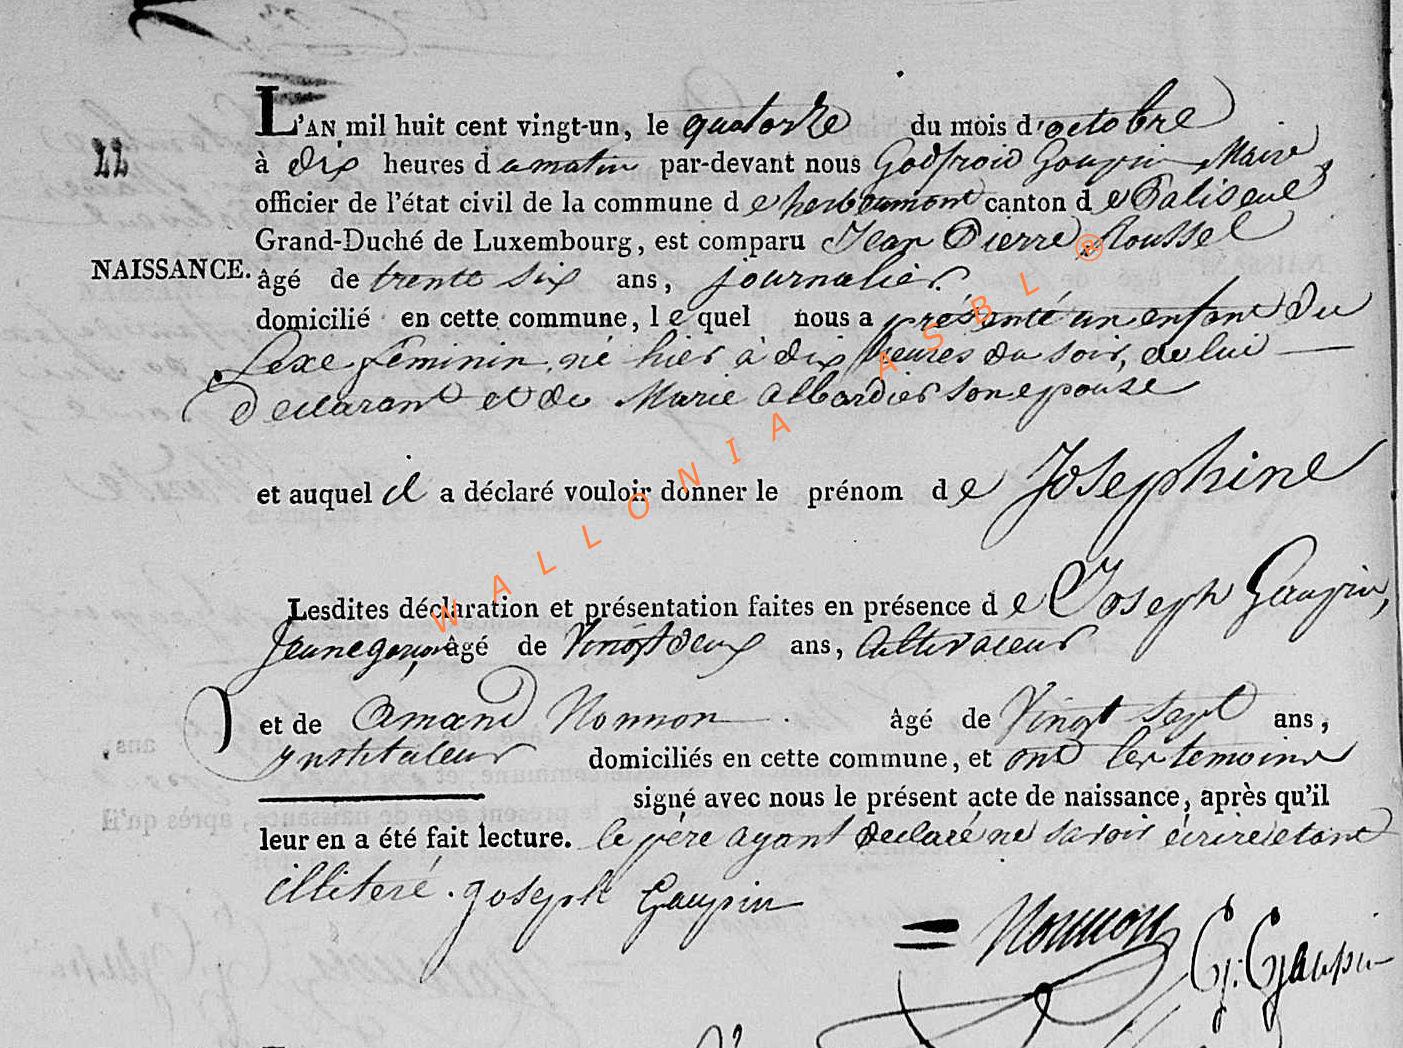 L'AN mil huit cent vingt-un, le quatorze du mois d'octobre
22
à dix heures du matin par-devant nous Godfroid Goupin, Maire
officier de l'état civil de la commune de herbeumont canton de Paliseul
Grand-Duché de Luxembourg, est comparu Jean Pierre Roussel
NAISSANCE.
âgé de trente six ans, journalier.
domicilié en cette commune, lequel nous a présenté un enfant du
sexe feminin, né hier à dix heures du soir, de lui
declarant et de Marie Albardier son epouse
et auquel il a déclaré vouloir donner le prénom de Josephine
Lesdites déclaration et présentation faites en présence de Joseph Gaupin,
Jeune garçon, âgé de Vingt deux ans, Cultivateur
et de Amand Nonnon âgé de Vingt sept ans,
ynstituteur domiciliés en cette commune, et ont les temoins
signé avec nous le présent acte de naissance, après qu'il
leur en a été fait lecture. le père ayant declaré ne savoir écrire etant
illiteré. Joseph Gaupin
Nonnon G: Gaupin
WALLONIA ASBL ®